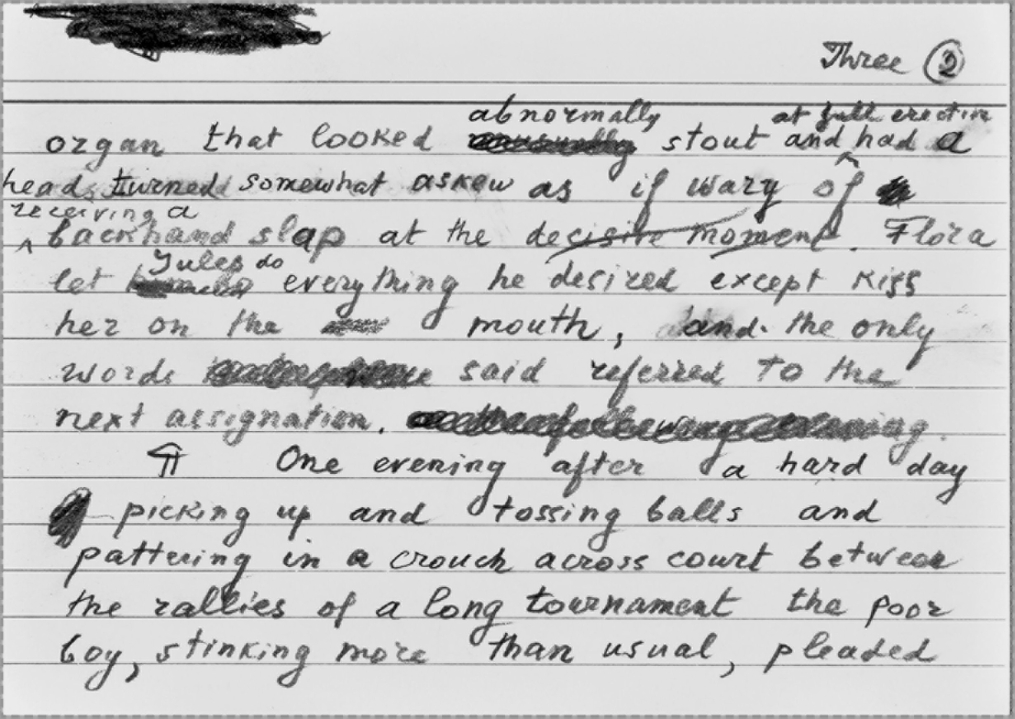 Three 2
abnormally at full erection
organ that looked stout and had a
head turned somewhat askew as if wary of
receiving a
backhand slap at the decisive moment. Flora
Jules do
let everything he desired except kiss
her on the mouth, and the only
words said referred to the
next assignation.
¶ One evening after a hard day
picking up and tossing balls and
pattering in a crouch across court between
the rallies of a long tournament the poor
boy, stinking more than usual, pleaded